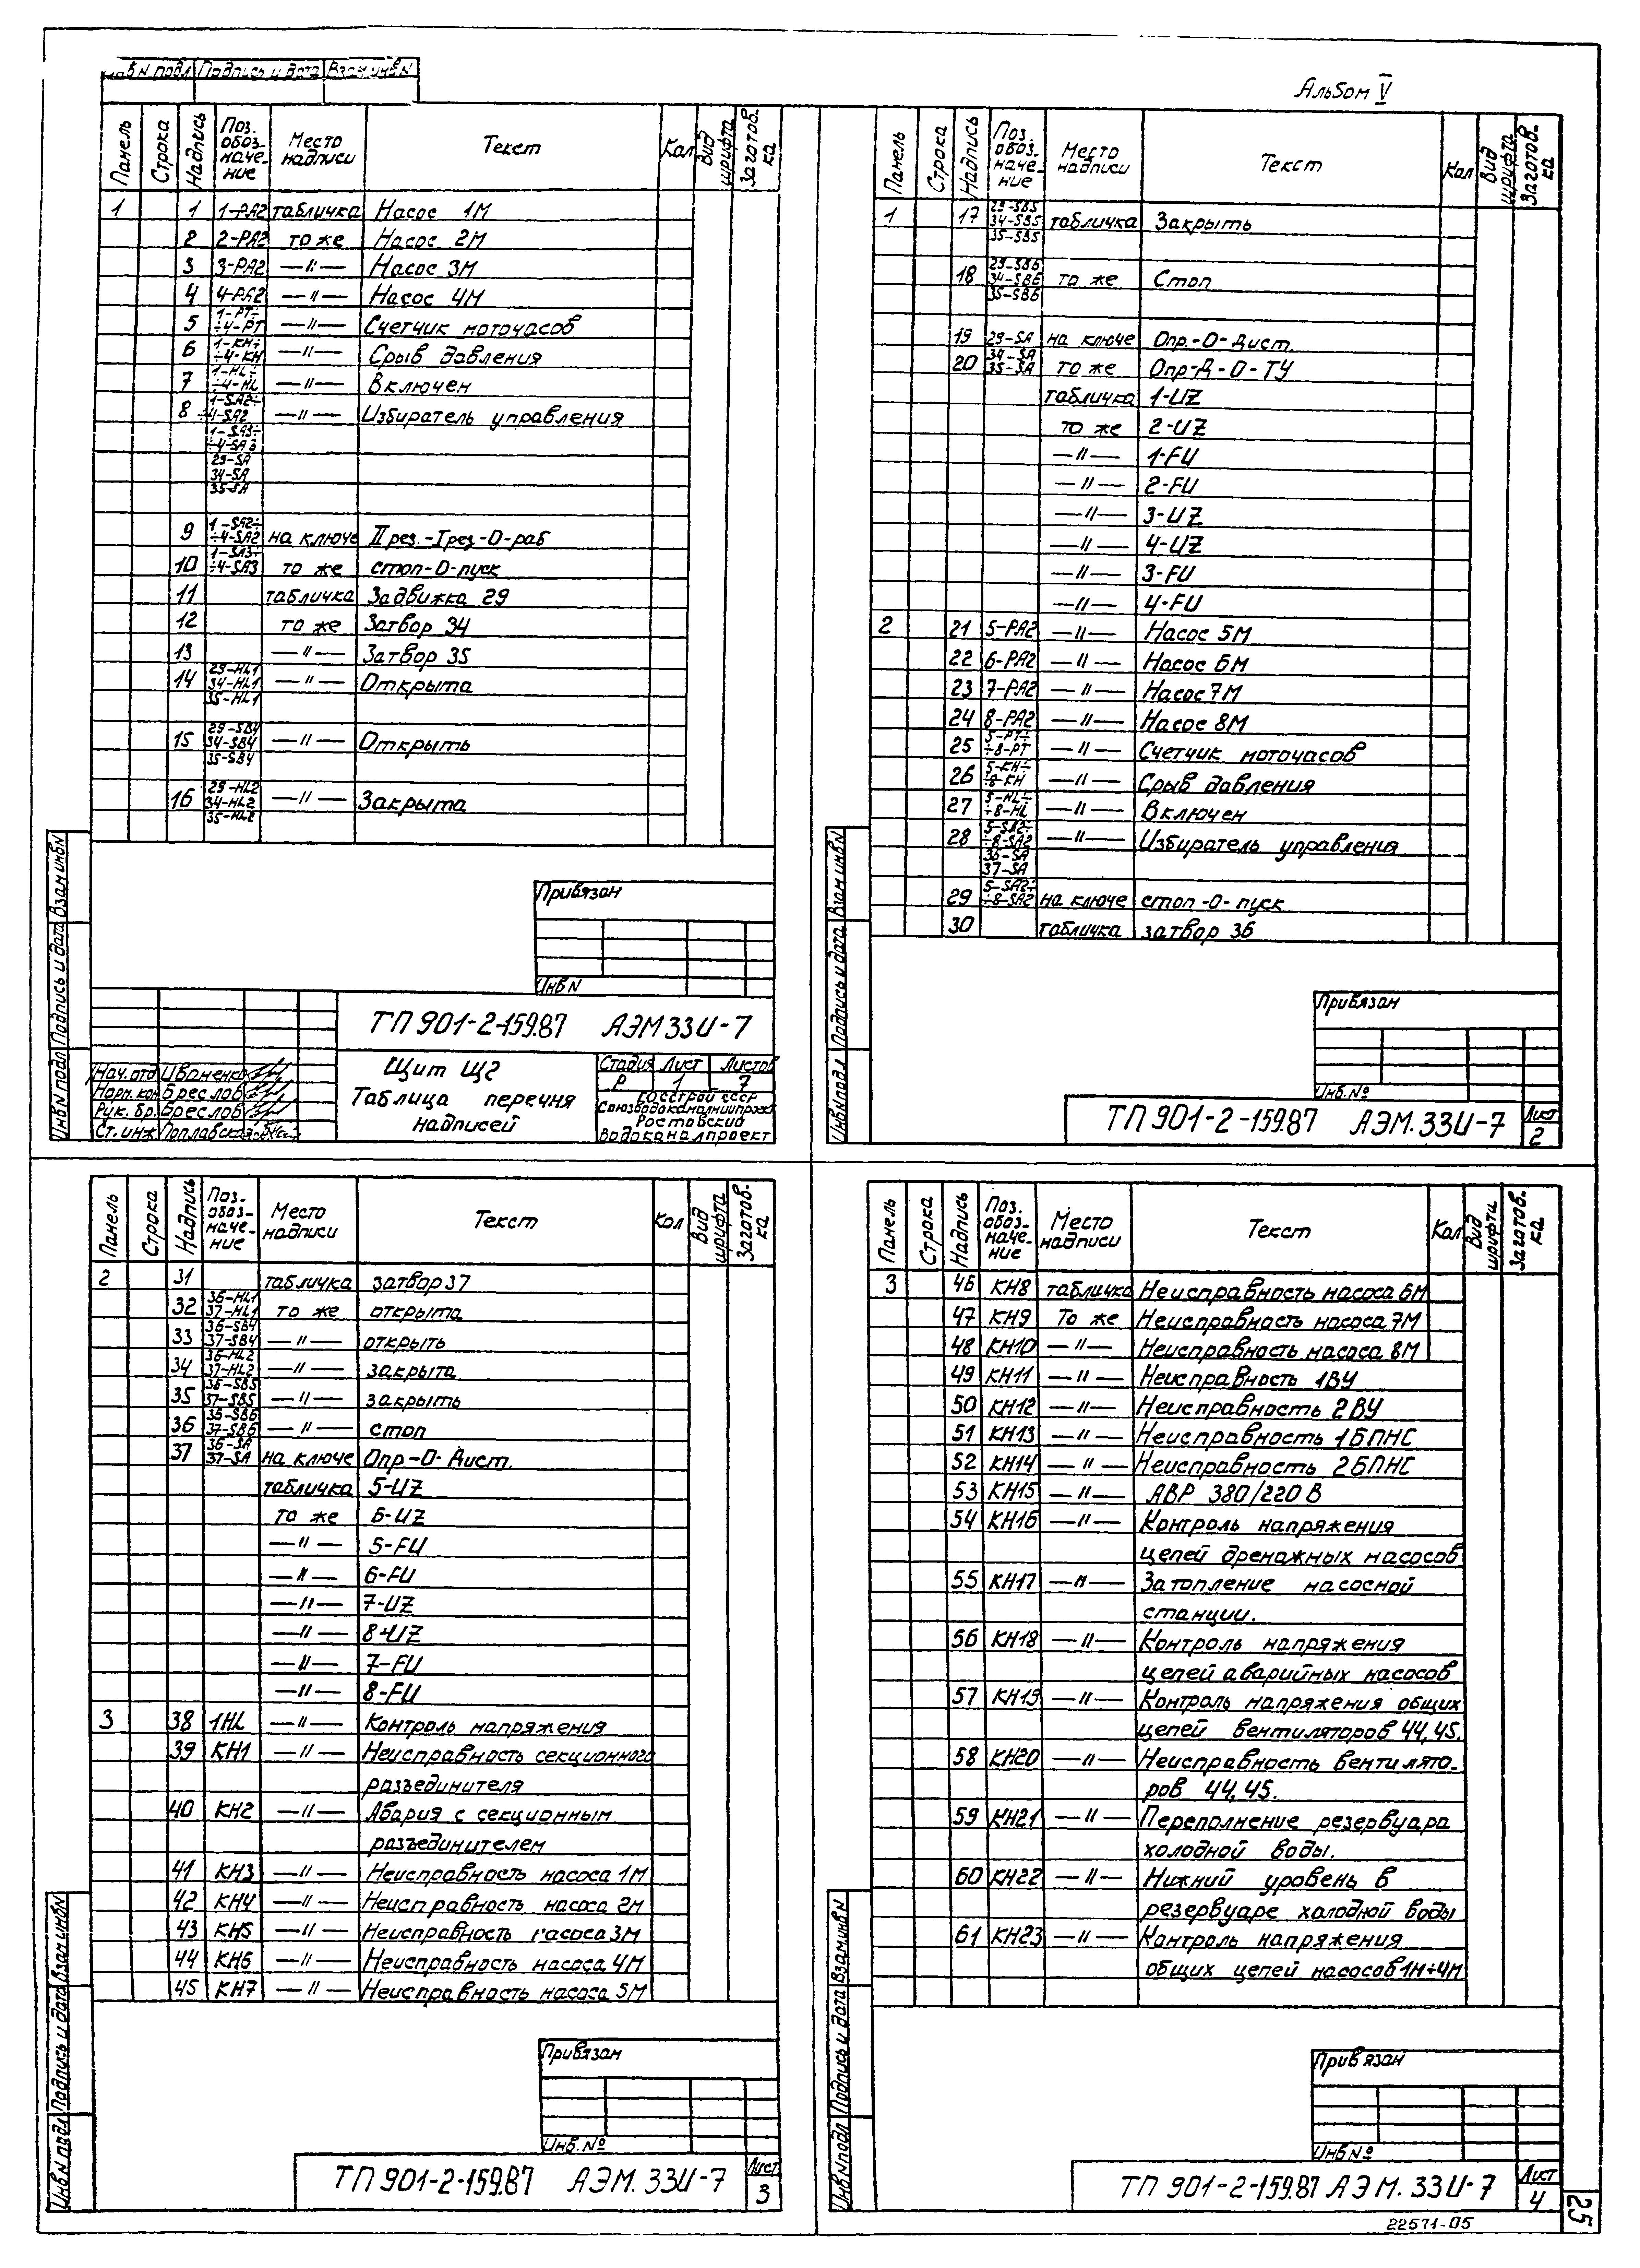 Инв N подл Подпись и дата Взам.инв N
Альбом V
Панель Строка Надпись Поз. обоз- наче- ние Место надписи Текст Кол Вид шрифта Заготов- ка
1 1 1-PA2 табличка Насос 1М
2 2-PA2 то же Насос 2М
3 3-PA2 —"— Насос 3М
4 4-PA2 —"— Насос 4М
5 1-PT÷ ÷4-PT —"— Счетчик моточасов
6 1-KH÷ ÷4-KH —"— Срыв давления
7 1-HL÷ ÷4-HL —"— Включен
8 1-SA2÷ ÷4-SA2 —"— Избиратель управления
1-SA3÷
÷4-SA3
29-SA
34-SA
35-SA
9 1-SA2÷ ÷4-SA2 на ключе II рез.-I рез-О-раб
10 1-SA3÷ ÷4-SA3 то же стоп-О-пуск
11 табличка Задвижка 29
12 то же Затвор 34
13 —"— Затвор 35
14 29-HL1 34-HL1 35-HL1 —"— Открыта
15 29-SB4 34-SB4 35-SB4 —"— Открыть
16 29-HL2 34-HL2 35-HL2 —"— Закрыта
Привязан
Инв N
ТП 901-2-159.87 АЭМ 33И-7
Щит Щ2
Таблица перечня
надписей
Стадия Лист Листов
Р 1 7
Госстрой СССР
Союзводоканалниипроект
Ростовский
Водоканалпроект
Нач. отд Иваненко
Норм. кон Бреслов
Рук. бр. Бреслов
Ст. инж Поплавская
Инв N подл Подпись и дата Взам инв N
Панель Строка Надпись Поз. обоз- наче- ние Место надписи Текст Кол Вид шрифта Заготов- ка
1 17 29-SB5 34-SB5 35-SB5 табличка Закрыть
18 29-SB6 34-SB6 35-SB6 то же Стоп
19 29-SA на ключе Опр.-О-Дист.
20 34-SA 35-SA то же Опр-Д-О-ТУ
табличка 1-UZ
то же 2-UZ
—"— 1-FU
—"— 2-FU
—"— 3-UZ
—"— 4-UZ
—"— 3-FU
—"— 4-FU
2 21 5-PA2 —"— Насос 5М
22 6-PA2 —"— Насос 6М
23 7-PA2 —"— Насос 7М
24 8-PA2 —"— Насос 8М
25 5-PT÷ ÷8-PT —"— Счетчик моточасов
26 5-KH÷ ÷8-KH —"— Срыв давления
27 5-HL÷ ÷8-HL —"— Включен
28 5-SA2÷ ÷8-SA2 —"— Избиратель управления
36-SA
37-SA
29 5-SA2÷ ÷8-SA2 на ключе стоп-О-пуск
30 табличка затвор 36
Привязан
Инв.№
ТП 901-2-159.87 АЭМ.33И-7
Лист
2
Инв N подл Подпись и дата Взам инв N
Панель Строка Надпись Поз.- обоз- наче- ние Место надписи Текст Кол Вид шрифта Заготов- ка
2 31 табличка затвор 37
32 36-HL1 37-HL1 то же открыта
33 36-SB4 37-SB4 —"— открыть
34 36-HL2 37-HL2 —"— закрыта
35 36-SB5 37-SB5 —"— закрыть
36 36-SB6 37-SB6 —"— стоп
37 36-SA 37-SA на ключе Опр-О-Дист.
табличка 5-UZ
то же 6-UZ
—"— 5-FU
—"— 6-FU
—"— 7-UZ
—"— 8-UZ
—"— 7-FU
—"— 8-FU
3 38 1HL —"— Контроль напряжения
39 KH1 —"— Неисправность секционного
разъединителя
40 KH2 —"— Авария с секционным
разъединителем
41 KH3 —"— Неисправность насоса 1М
42 KH4 —"— Неисправность насоса 2М
43 KH5 —"— Неисправность насоса 3М
44 KH6 —"— Неисправность насоса 4М
45 KH7 —"— Неисправность насоса 5М
Привязан
Инв.№
ТП 901-2-159.87 АЭМ.33И-7
Лист
3
Инв N подл Подпись и дата Взам инв N
Панель Строка Надпись Поз. обоз- наче- ние Место надписи Текст Кол Вид шрифти Заготов- ка
3 46 KH8 табличка Неисправность насоса 6М
47 KH9 То же Неисправность насоса 7М
48 KH10 —"— Неисправность насоса 8М
49 KH11 —"— Неисправность 1ВУ
50 KH12 —"— Неисправность 2ВУ
51 KH13 —"— Неисправность 1БПНС
52 KH14 —"— Неисправность 2БПНС
53 KH15 —"— АВР 380/220 В
54 KH16 —"— Контроль напряжения
цепей дренажных насосов
55 KH17 —"— Затопление насосной
станции.
56 KH18 —"— Контроль напряжения
цепей аварийных насосов
57 KH19 —"— Контроль напряжения общих
цепей вентиляторов 44,45.
58 KH20 —"— Неисправность вентилято-
ров 44,45.
59 KH21 —"— Переполнение резервуара
холодной воды.
60 KH22 —"— Нижний уровень в
резервуаре холодной воды
61 KH23 —"— Контроль напряжения
общих цепей насосов 1М÷4М
Привязан
Инв.№
ТП 901-2-159.87 АЭМ. 33И-7
Лист
4
Инв N подл Подпись и дата Взам.инв N
25
22571-05